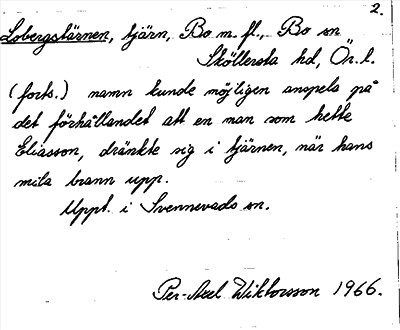 2.
Lobergstärnen, tjärn, Bo m. fl., Bo sn
Sköllersta hd, Ör. l.
(forts.) namn kunde möjligen anspela på
det förhållandet att en man som hette
Eliasson, dränkte sig i tjärnen, när hans
mila brann upp.
Uppt. i Svennevads sn.
Per-Axel Wiktorsson 1966.